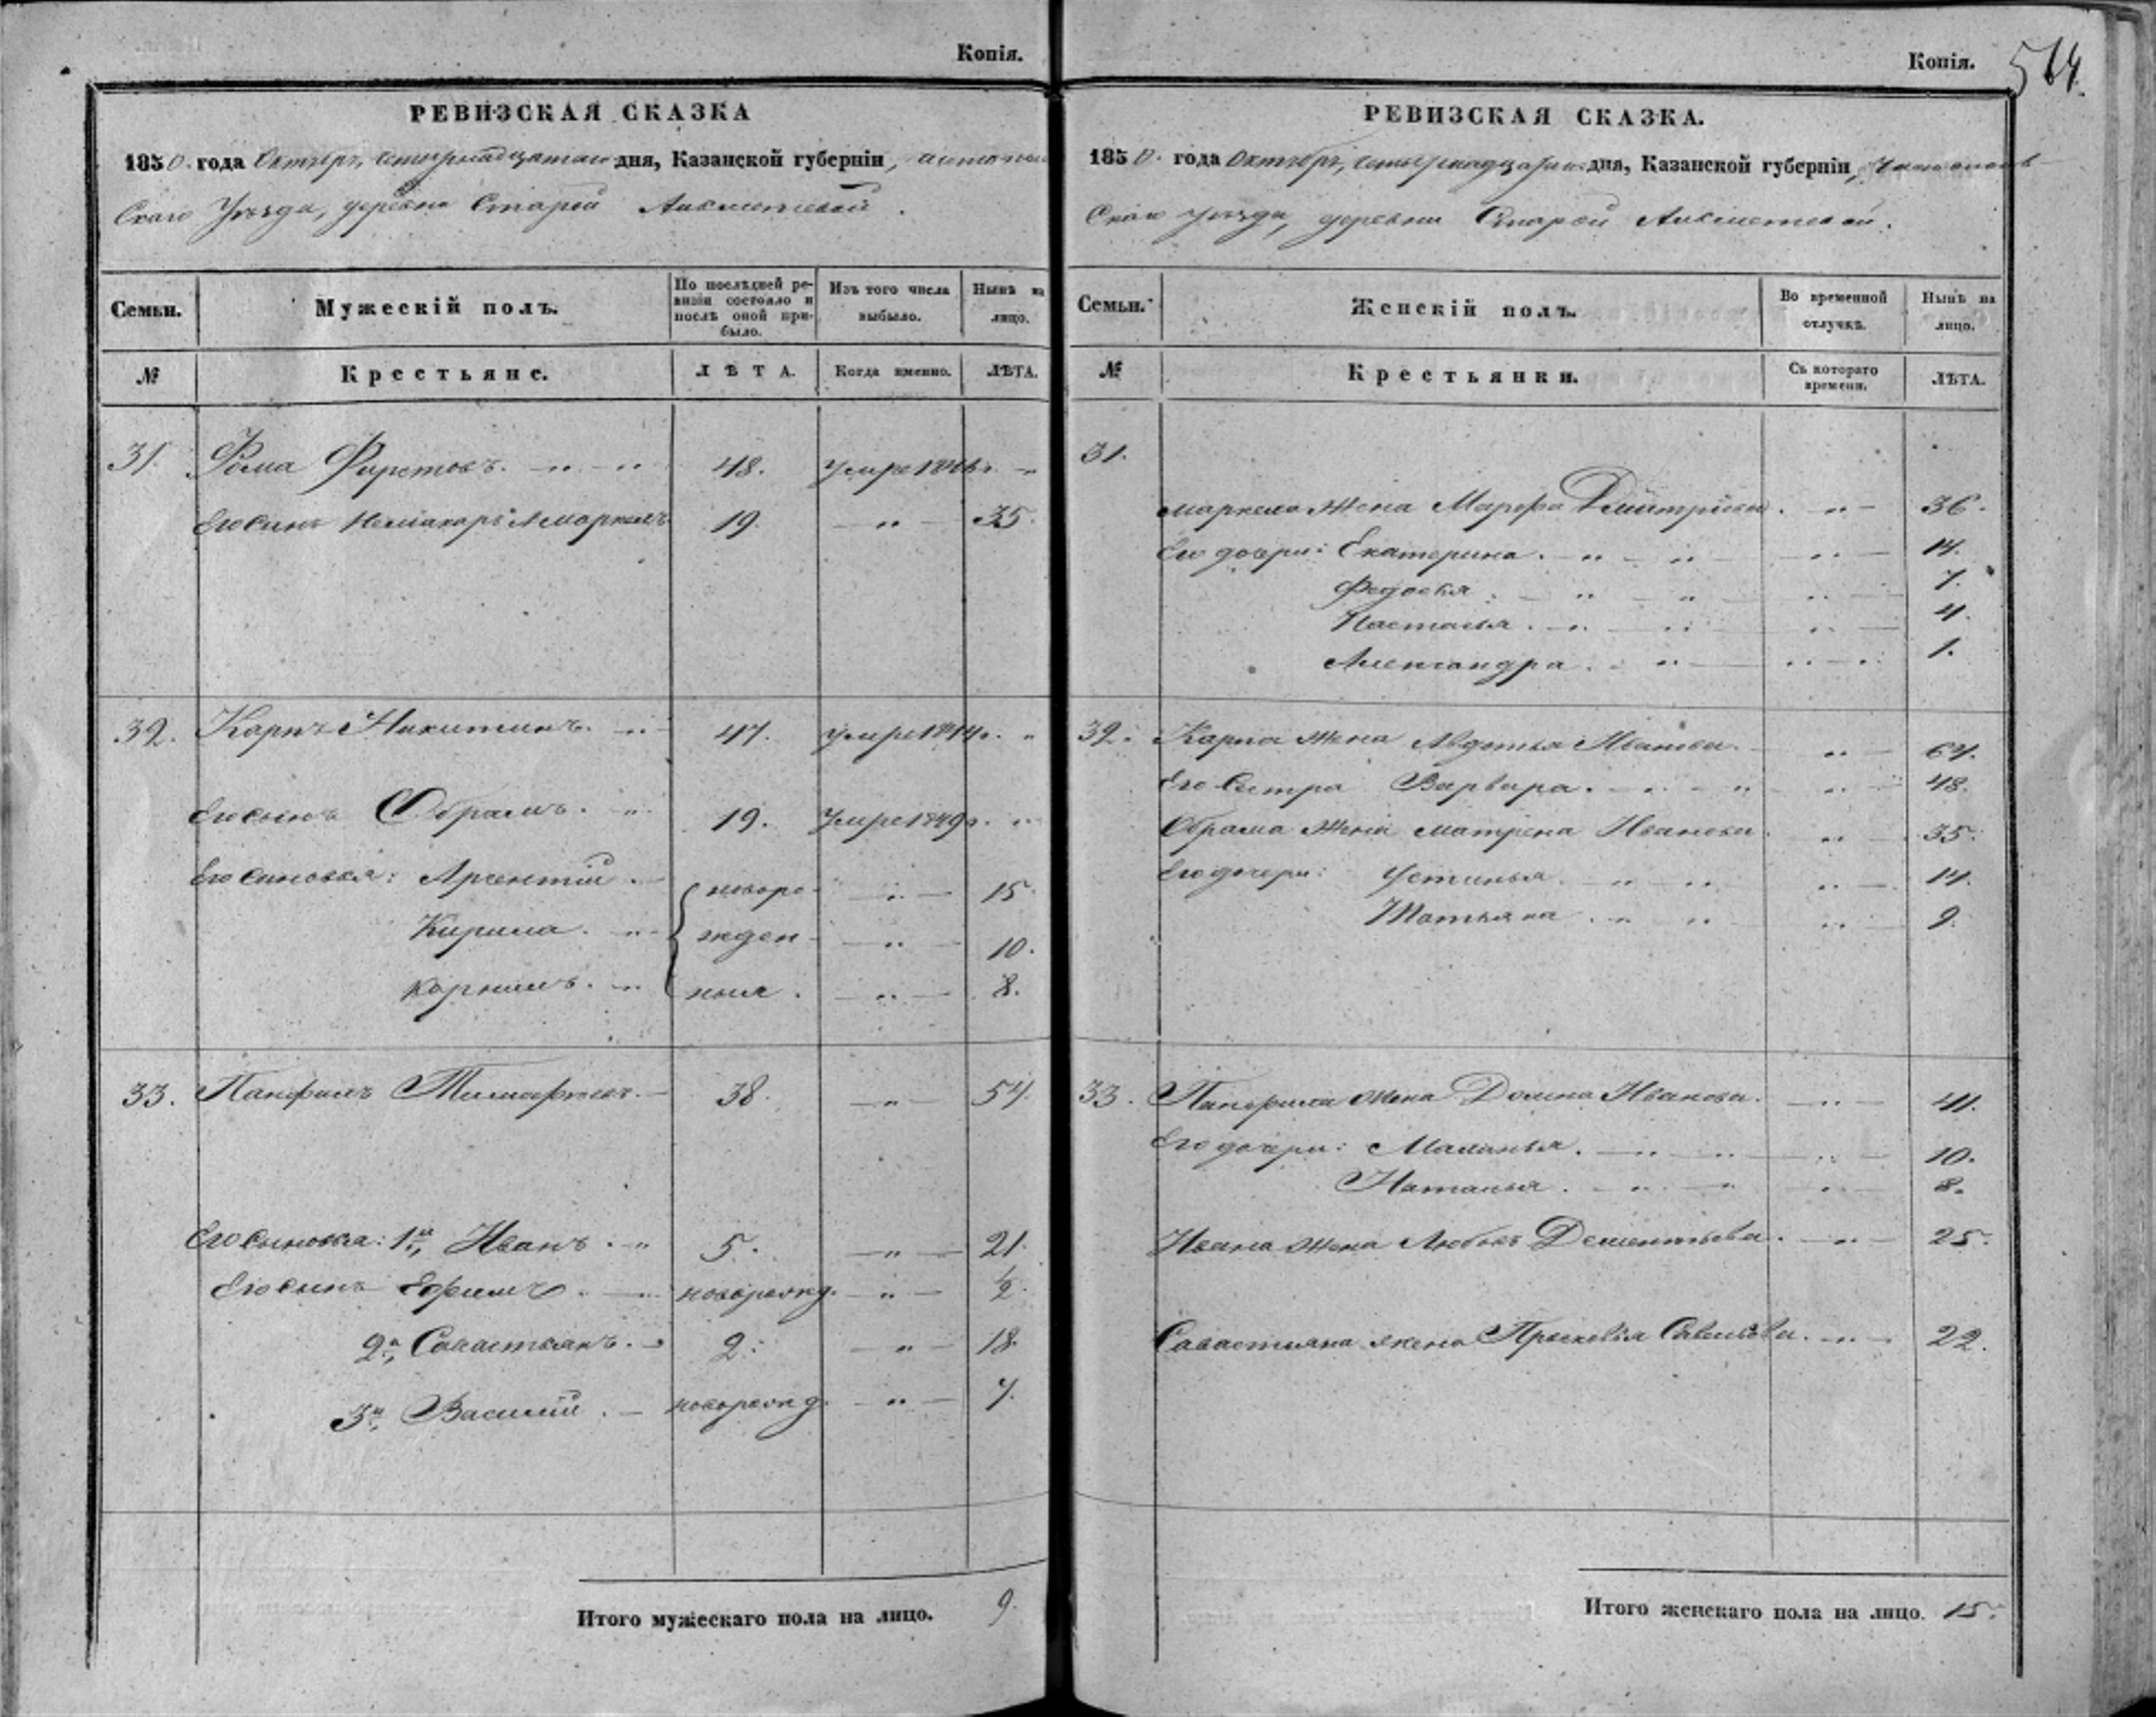 Копія.
РЕВИЗСКАЯ СКАЗКА
1850. года Октября, четырнадцатаго дня, Казанской губерніи,
Скаго Уѣзда, деревни Старой
Семьи. Мужескій полъ. По послѣдней ревизіи состояло и послѣ оной прибыло. Изъ того числа выбыло. Нынѣ на лицо.
№ Крестьяне. ЛѢТА. Когда именно. ЛѢТА.
31. Фома 48. Умре 1846 г.
Его сынъ 19. 35.
32. Карпъ Никитинъ. 47. Умре 1844 г.
Его сынъ Обрамъ. 19. Умре 1849 г.
Его сыновья: 15.
Кирила. 10.
Корнилъ. 8.
новорожденныя.
33. Панфилъ 38. 54.
Его сыновья: 1й Иванъ. 5. 21.
Его сынъ Ефимъ. новорожд. 1/2.
2й Савастьянъ. 2. 18.
3й Василій. новорожд. 7.
Итого мужескаго пола на лицо. 9.
Копія. 564.
РЕВИЗСКАЯ СКАЗКА.
1850. года Октября, четырнадцатаго дня, Казанской губерніи,
Скаго уѣзда, деревни Старой
Семьи. Женскій полъ. Во временной отлучкѣ. Нынѣ на лицо.
№ Крестьянки. Съ котораго времени. ЛѢТА.
31.
Маркела жена Марфа Дмитріева. 36.
Его дочери: Екатерина. 14.
Федосья. 7.
Настасья. 4.
Александра. 1.
32. Карпа жена Авдотья Иванова. 64.
Его сестра Варвара. 48.
Обрама жена Матрена Иванова. 35.
Его дочери: Устинья. 14.
Татьяна. 9.
33. Панфила жена Домна Иванова. 41.
Его дочери: Маланья. 10.
Наталья. 8.
Ивана жена Любовь Дементьева. 25.
Савастьяна жена Прасковья Савельева. 22.
Итого женскаго пола на лицо. 15.